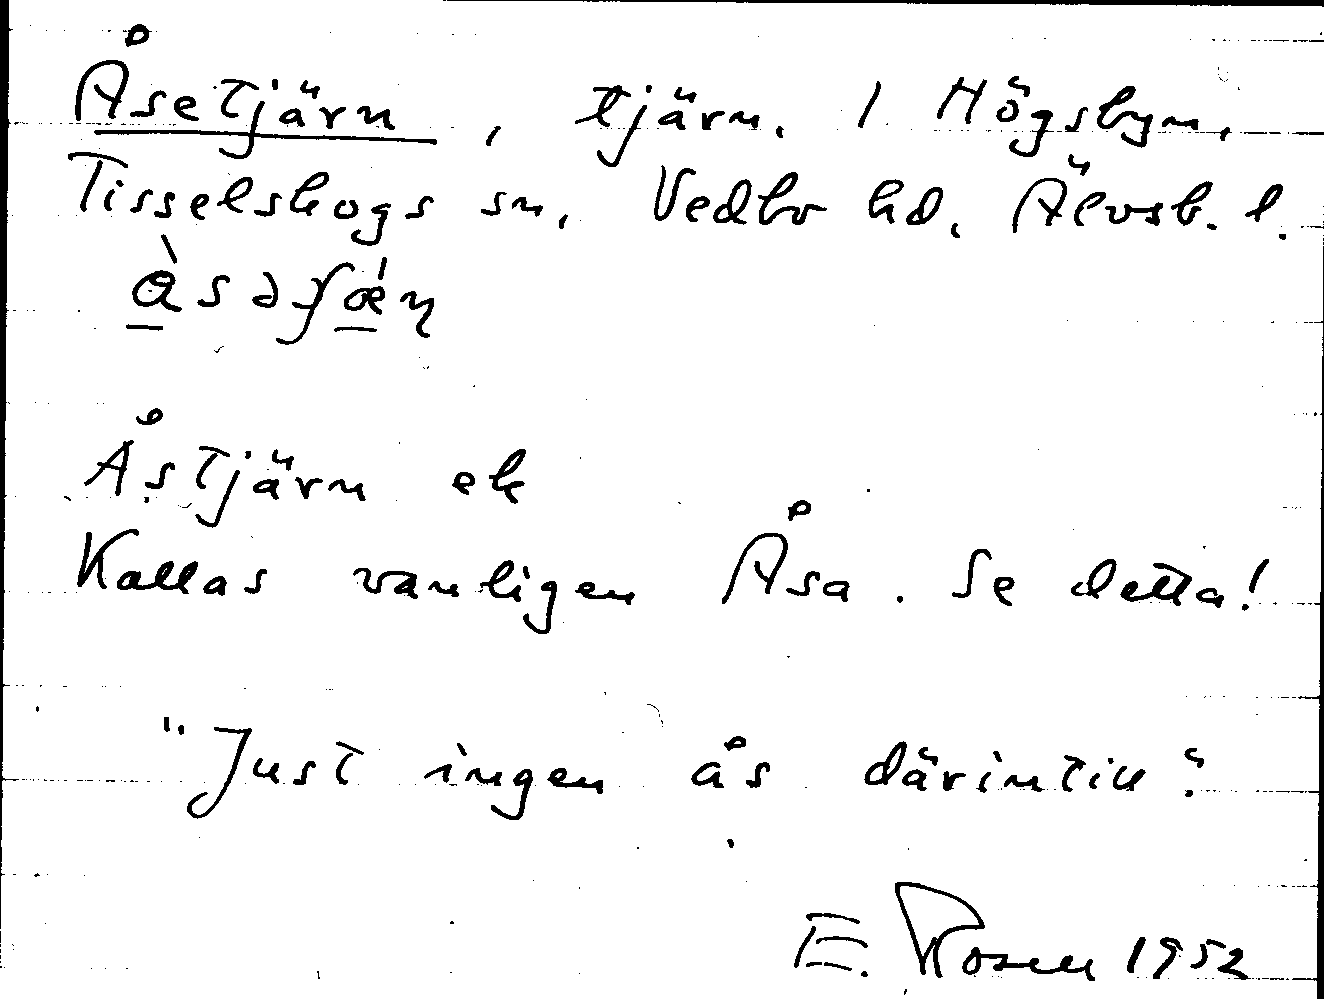 Åsetjärn, tjärn. I Högsbyn,
Tisselskogs sn, Vedbo hd, Älvsb. l.
Åstjärn ek
Kallas vanligen Åsa. Se detta!
"Just ingen ås därintill".
E. Rosen 1952